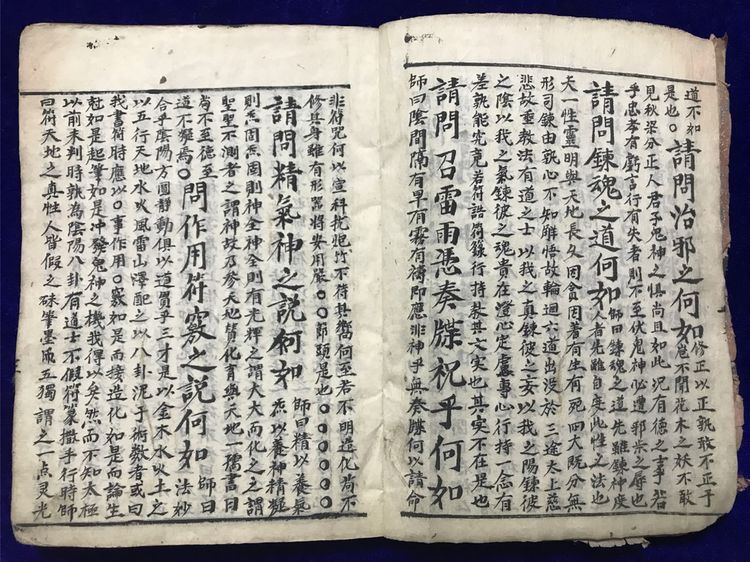 道不如
是也○請問治邪之何如
修正以正孰敢不正于
不聞花木之妖不敢
見秋梁分正人君子鬼神之惧尚且如此况有德之士若
乎忠孝有虧言行有失者則不至伏鬼神必遭邪祟之辱也
請問鍊魂之道何如
師曰鍊魂之道先雖鍊神度
人者先雖自度此性之法也
夫一性靈明與天地長久因貪因著有生有死四大既分無
形可鍊由執心不知離悟故輪迴六道出没於三途太上慈
悲故重教法有道之士以我之真鍊彼之妄以我之陽鍊彼
之陰以我之氣鍊彼之魂貴在澄心定慮專心行持一念有
差孰能究竟若符誥符籙行持教其文实也其实不在是也
請問召雷雨憑奏牒祝乎何如
師曰陰間隔有旱有霧有禱即應非神乎無奏牒何以請命
非符咒何以宣科抗犯竹不符其嚮何至若不明造化尚不
修其身雖有形器將安用哉○○節頭是也○○○○○
請問精氣神之說何如
師曰精以養氣
炁以養神精凝
則炁固炁固則神全神全則有光輝之謂大大而化之之謂
聖聖不測者之謂神故乃參天地賛化育與天地一稱書曰
尚不至德至
道不凝焉○問作用符竅之說何如
師曰
法妙
合乎陰陽方圓静動俱以道質乎三才是以金木水火土之
以五行天地水火風雷山澤配之以八卦泥于術数者或曰
我書符時應以○事作用○竅如是而接造化如是而論生
尅如是起筆如是冲發鬼神之機我得以矣然而不知太極
以前未判時孰為陰陽八卦有道士不假符篆撒手行時師
曰符天地之真性人皆假之硃筆墨硯五獨謂之一点灵光